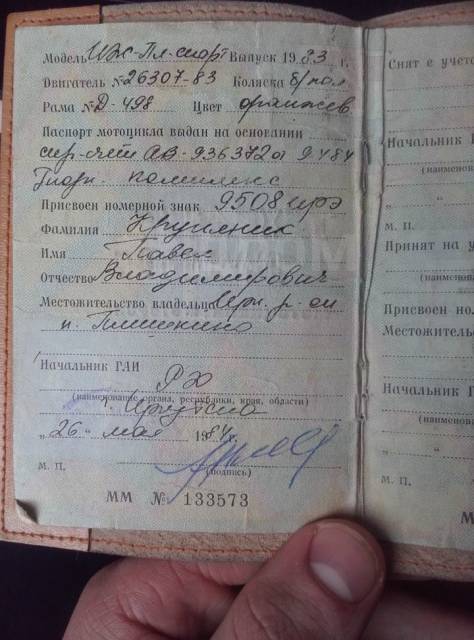 Модель Иж-Пл-спорт Выпуск 1983 г.
Двигатель № 26307-83 Коляска б/кол
Рама № Д-498 Цвет оранжев
Паспорт мотоцикла выдан на основании
спр-счет АВ-936372 от 9.4.84
комиленс
Присвоен номерной знак 9508 ирэ
Фамилия
Имя Павел
Отчество Владимирович
Местожительство владельца Ирк. р-он
п.
Начальник ГАИ
РХ
(наименование органа, республики, края, области)
г. Иркутска
„26" мая 1984 г.
(подпись)
М. П.
ММ № 133573
Снят с учета
Начальник
(наименован
„ "
М. П.
Принят на у
(наименован
Присвоен ном
Местожительс
Начальник
(наименован
„ "
М. П.
М